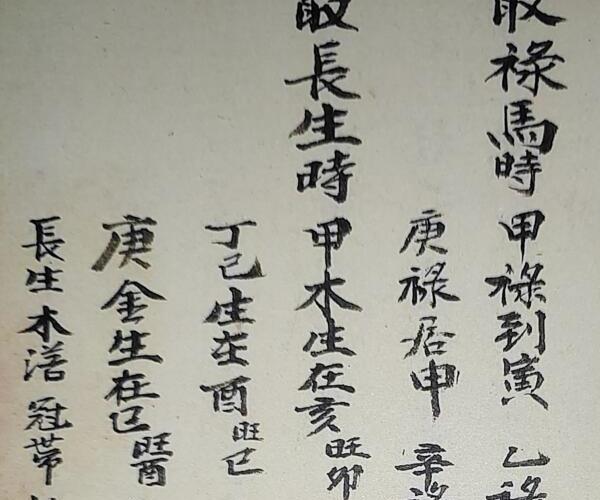 取禄馬時 甲禄到寅 乙禄
庚禄居申 辛禄
取長生時 甲木生在亥 旺卯
丁己生在酉 旺巳
庚金生在巳 旺酉
長生 木浴 冠帯